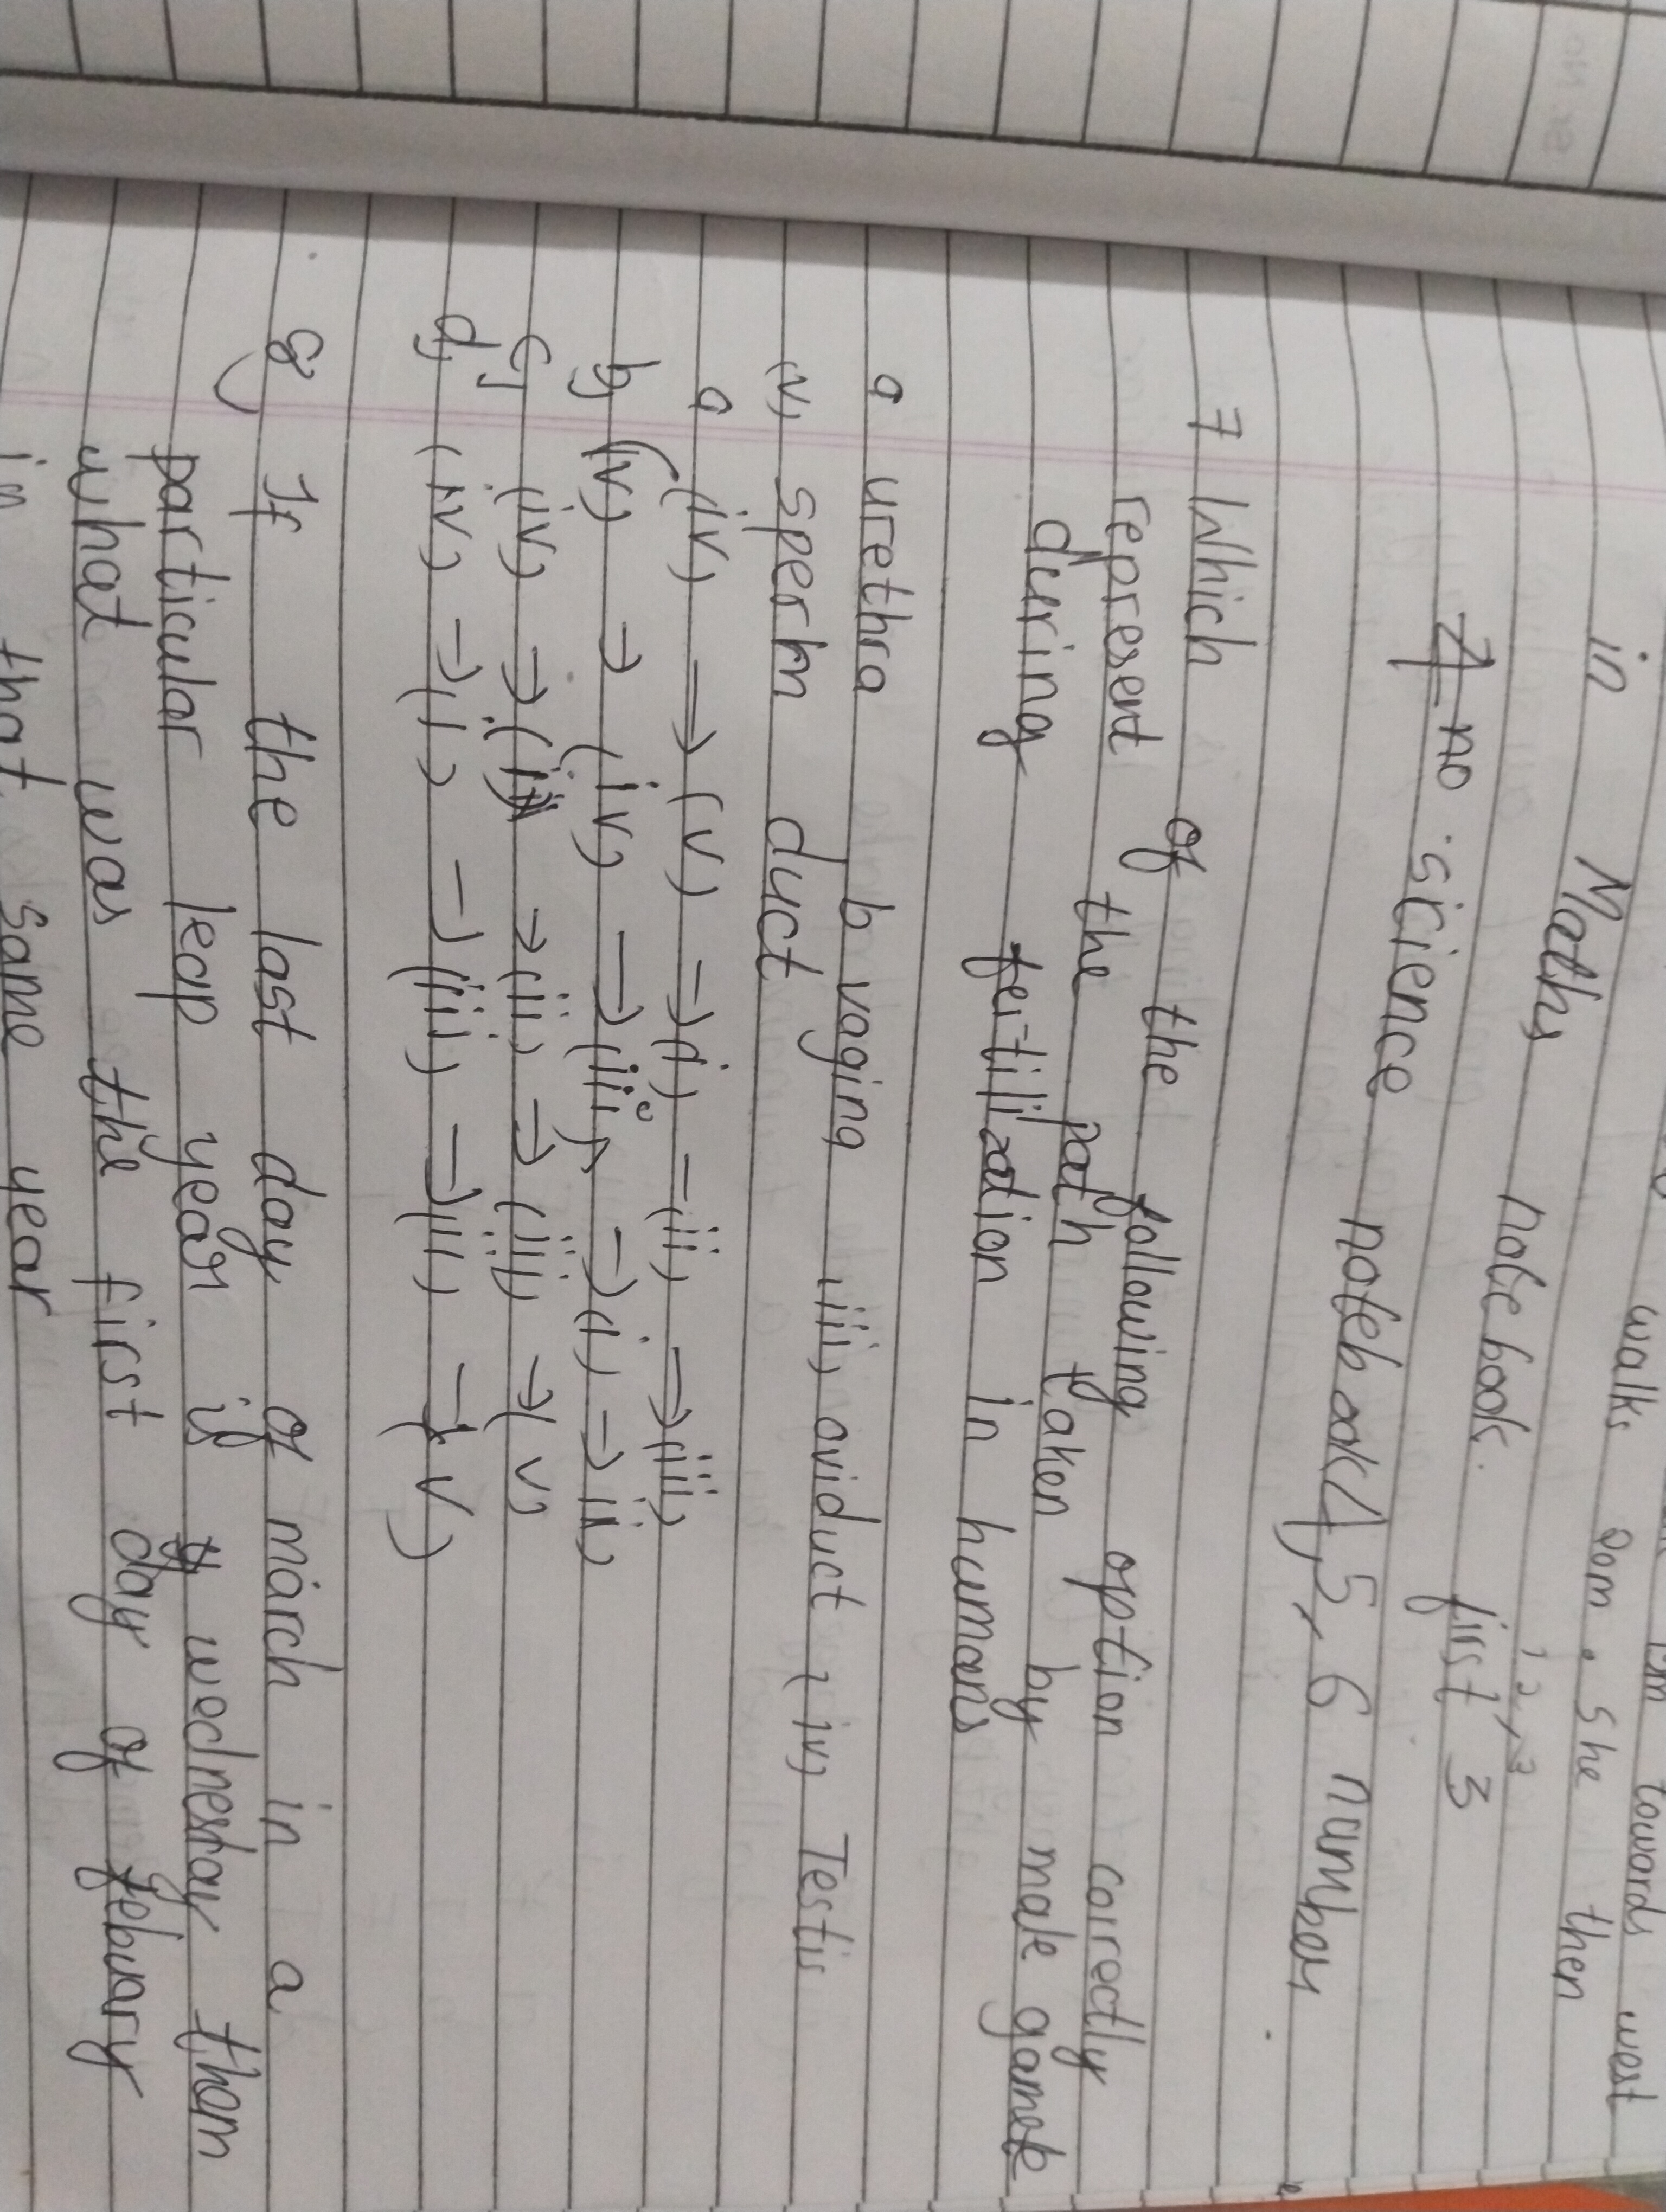 walks 2om . She then
in Maths notebook . first 3
1 2 , 3
no . science notebook 4, 5, 6 number
7 Which of the following option correctly
represent the path taken by male gamete
during fertilization in humans
a urethra b vagina iii, oviduct , iv, Testis
v, sperm duct
a (iv) ⇒ (v) ⇒ (i) ⇒ (ii) ⇒ (iii)
b, (iv) ⇒ (iv) ⇒ (iii) ⇒ (i) ⇒ ii)
c, (iv) ⇒ ( ⇒ (ii) ⇒ (iii) ⇒ (v)
d, (iv) ⇒ (i) ⇒ (iii) ⇒ (ii) ⇒ (v)
8 If the last day of march in a
particular leap year is wednesday then
what was the first day of febuary
in that same year